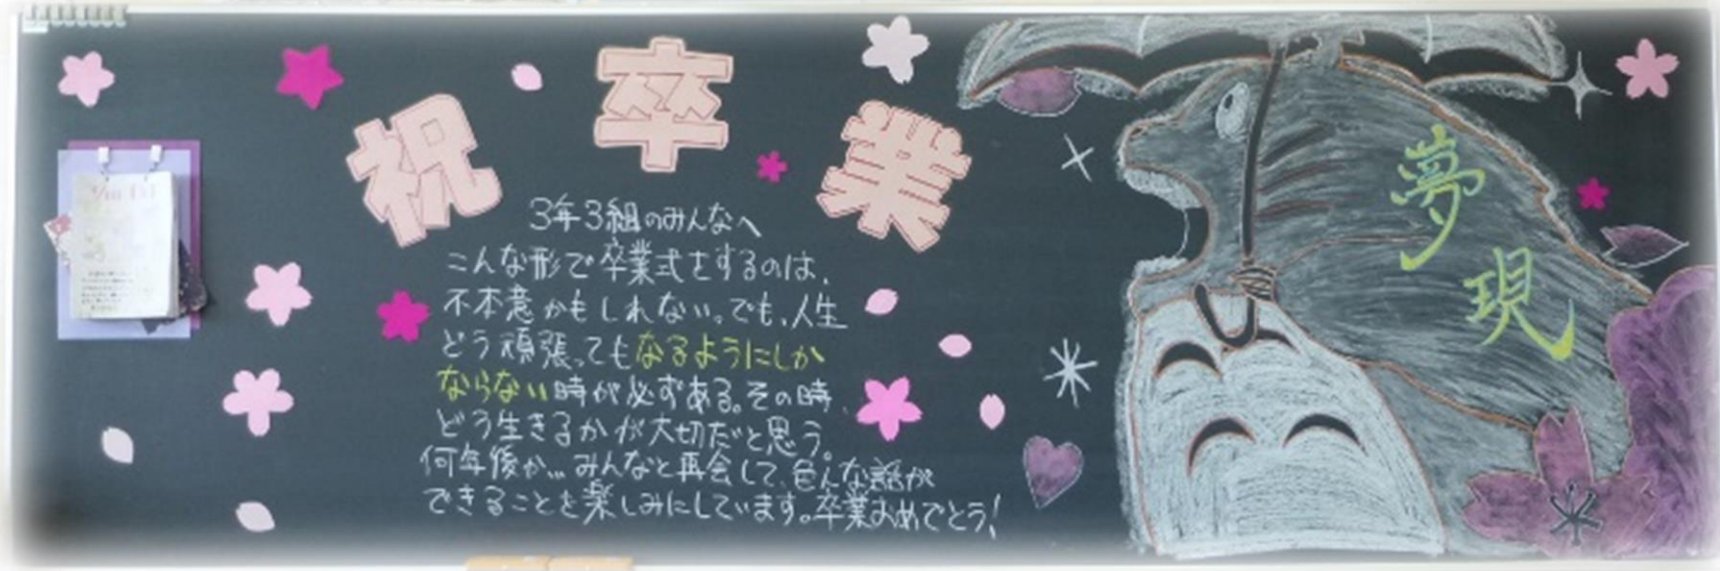 祝卒業
3年3組のみんなへ
こんな形で卒業式をするのは、
不本意かもしれない。でも、人生
どう頑張ってもなるようにしか
ならない時が必ずある。その時
どう生きるかが大切だと思う。
何年後か…みんなと再会して、色んな話が
できることを楽しみにしています。卒業おめでとう!
夢
現